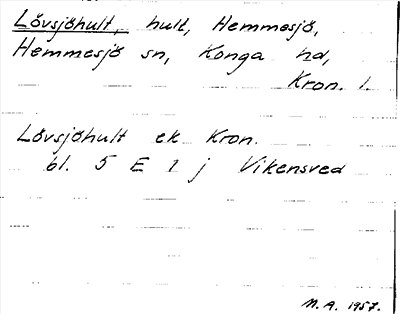 Lövsjöhult, hult, Hemmesjö,
Hemmesjö sn, Konga hd,
Kron. l.
Lövsjöhult ek Kron.
bl. 5 E 1 j Vikensved
M.A. 1957.